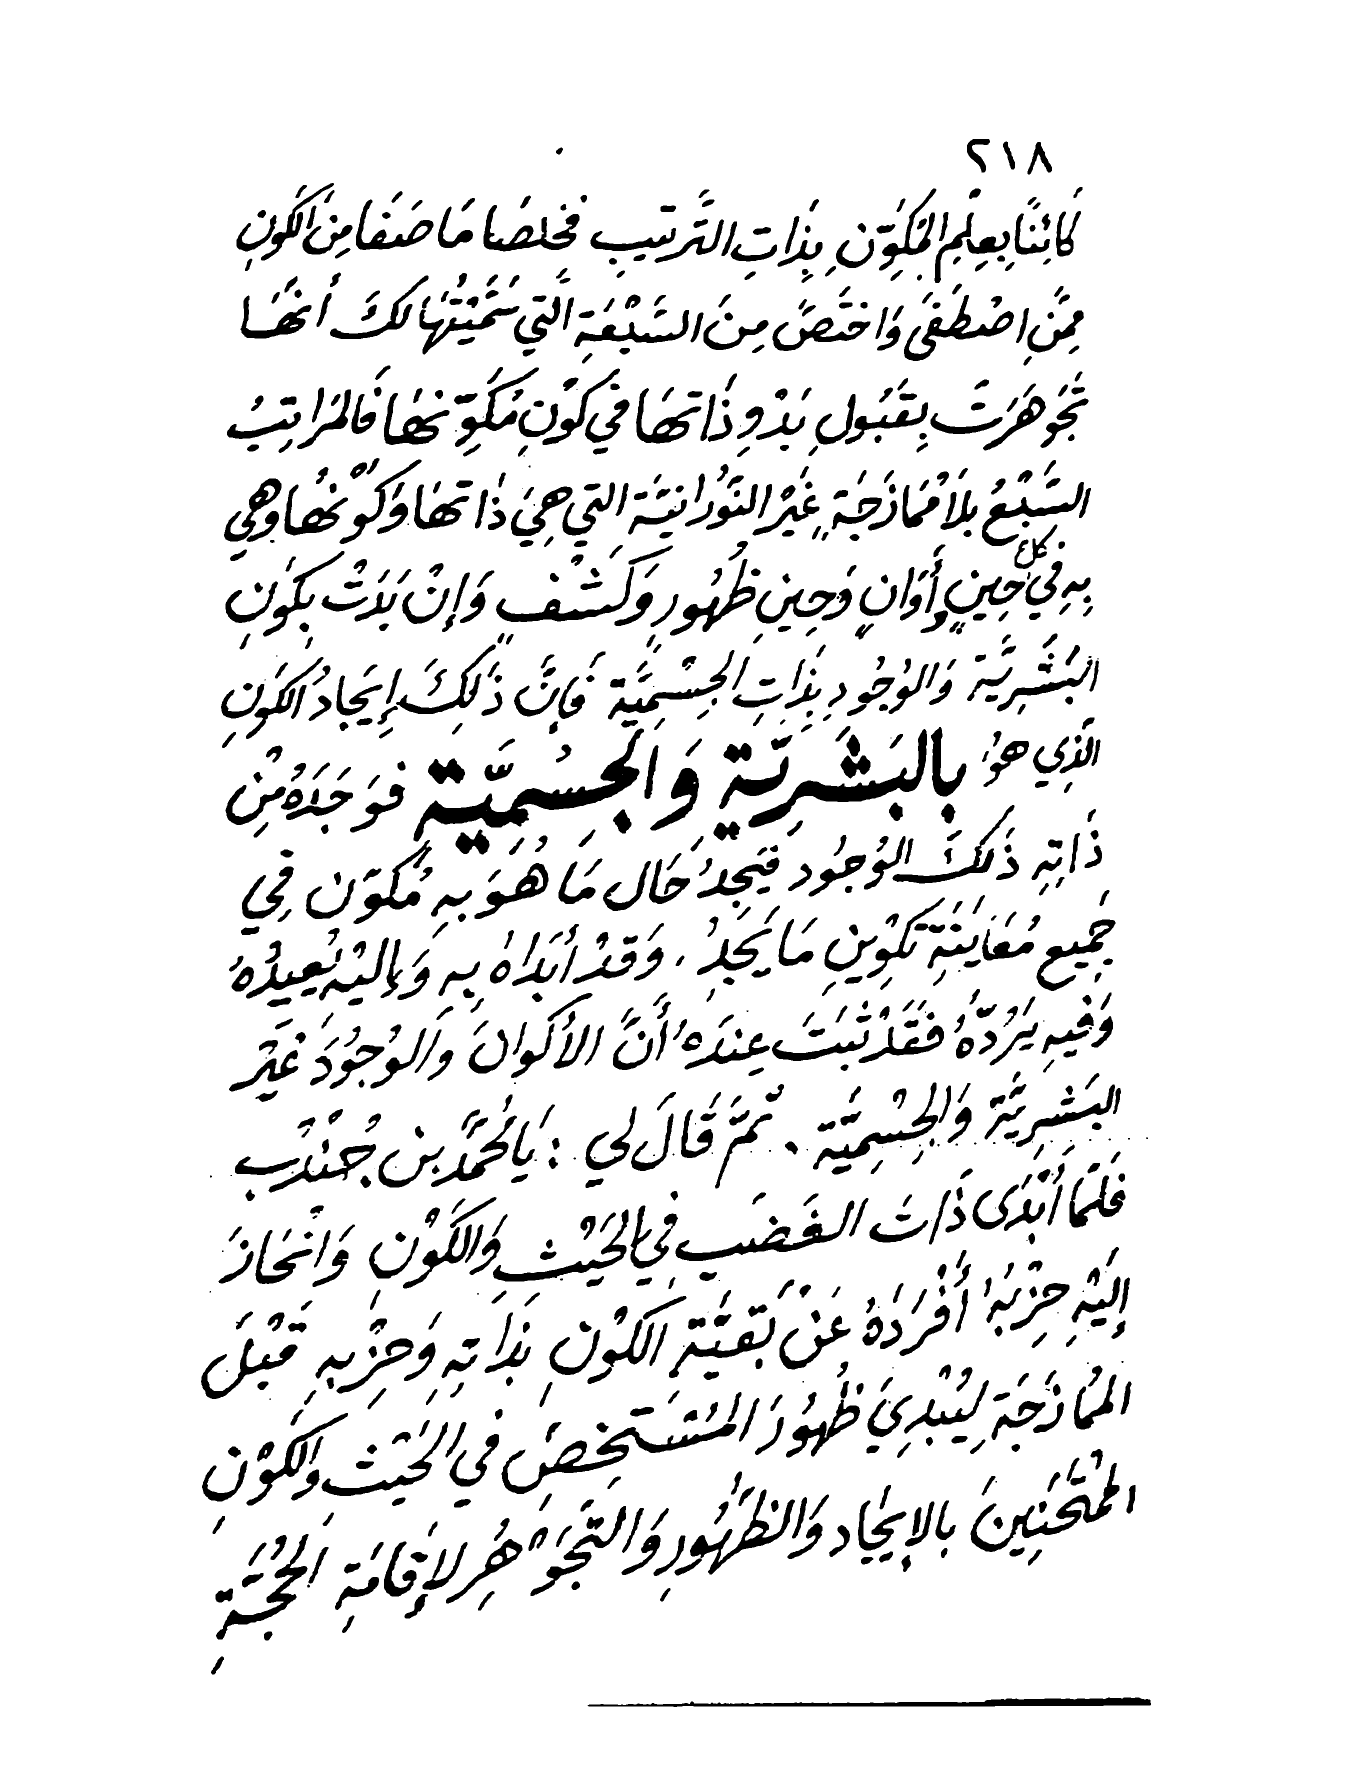 ٢١٨
كَائِنًا بِعِلْمِ المُكَوِّنِ بِذَاتِ التَّرتيبِ فخلصَا مَا صَفَا مِنَ الكَونِ
مِمَّنِ اصْطَفَى وَاختَصَّ مِنَ السَّبْعَةِ الَّتي سَمَّيْتُهَا لكَ أنَّهَا
تَجَوهَرَتْ بِقَبُولِ بَدْوِ ذَاتهَا في كَوْنِ مُكَوِّنهَا فَالمَرَاتِبُ
السَّبْعُ بلَا مُمَازَجَةٍ غَيْرِ النَّوُرَانيَّة التي هِيَ ذَاتهَا وَكَوْنُهَا وَهي
بِهِ في كل حِينٍ وأَوَانٍ وَحِينِ ظُهُورٍ وَكَشْفٍ وَإنْ بَدَتْ بكَونِ
البَشَرِيَّة وَالوُجُودِ بِذَاتِ الجِسْمِيَّة فَإنَّ ذَلِكَ إِيَجادُ الكَونِ
الَّذِي هوُ بالبَشَرِيّة وَالجسْمِيَّة فوَجَدَهُ مِنْ
ذَاتِهِ ذَلكَ الوُجُود فيَجِدُ حَال مَا هُوَ بهِ مُكَوّن فِي
جَمِيعِ مُعَاينَةِ تَكوِينِ مَا يَجَدُ . وَقدْ أبْدَاهُ بِهِ وَإليْهِ يُعِيدُهُ
وَفيهِ يَرُدّهُ فَقَدْ ثَبَتَ عِندَهُ أَنَّ الأكوانَ وَالوُجُودَ غَيْر
البَشَرِيَّة وَالجِسْمِيَّة . ثمَّ قَالَ لي : يَا مُحَمَّدُ بن جُنْدُب
فَلَمَا أبْدَى ذَاتَ الغَضَبِ فِي الحَيْثِ وَالكَوْنِ وَانْحَازَ
إلَيْهِ حِزْبُهُ أَفْرَدَهُ عَنْ بَقيَّة الكَوْنِ بذَاتِهِ وَحِزْبهِ قَبْلَ
المُمَازَجَةِ لِيُبْدِيَ ظُهُورَ المُسْتَخِصِّ في الحَيْث وَالكَوْنِ
المُمْتَحَنِينَ بالإيجَادِ وَالظُّهُورِ وَالتَّجَوْهُرِ لإقَامَةِ الحُجَّةِ